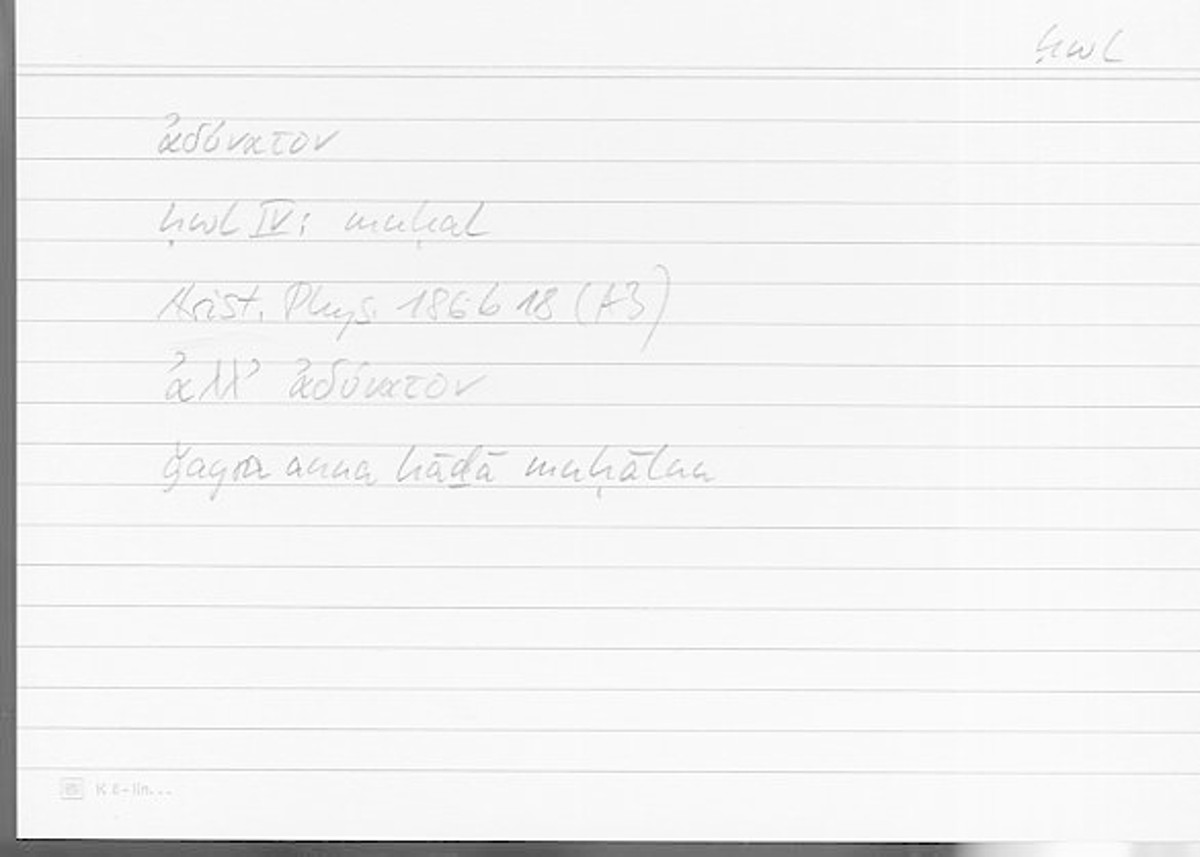 ḥwl
ἀδύνατον
ḥwl IV: muḥal
Arist. Phys. 186b18 (A3)
ἀλλ’ ἀδύνατον
ġayra anna hāḏā muḥālun
K 8-lin...